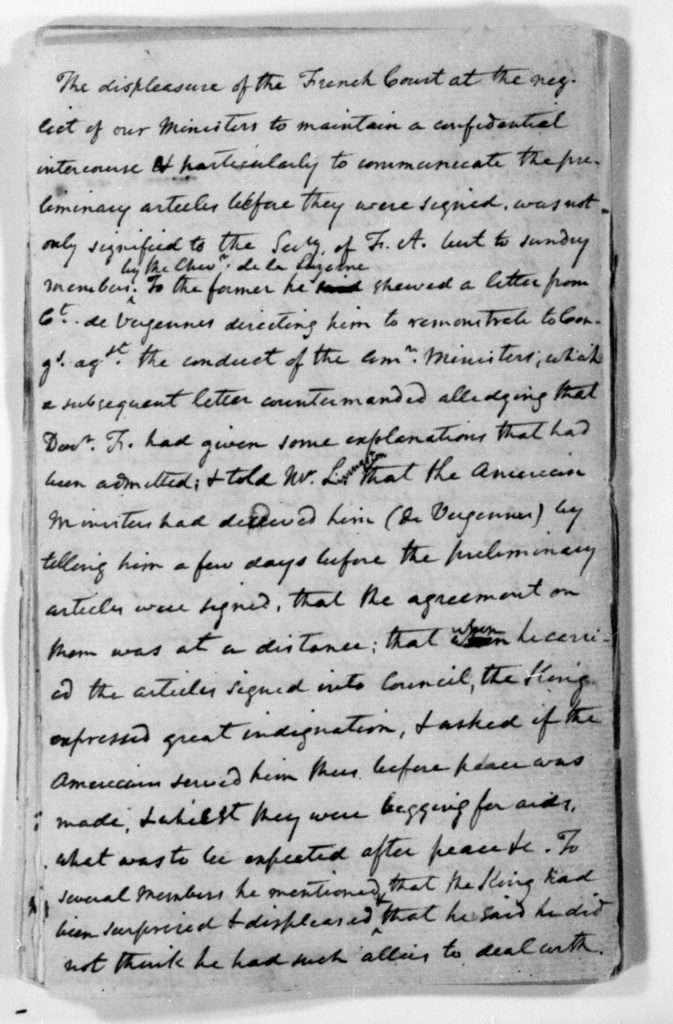 The displeasure of the French Court at the neg-
lect of our Ministers to maintain a confidential
intercourse & particularly to communicate the pre-
liminary articles before they were signed. was not
only signified to the Secty. of F. A. but to sundry
by the Chevr. de la Luzerne
members. To the former he shewed a letter from
Ct. de Vergennes directing him to remonstrate to Con-
gs. agst. the conduct of the Amn. Ministers; which
a subsequent letter countermanded alledging that
Docr. Fr. had given some explanations that had
been admitted; & told Mr. Livingston that the American
Ministers had deceived him (de Vergennes) by
telling him a few days before the preliminary
articles were signed, that the agreement on
them was at a distance; that when he carri-
ed the articles signed into Council, the King
expressed great indignation, & asked if the
Americans served him thus before peace was
made, & whilst they were begging for aids,
what was to be expected after peace &c. To
several Members he mentioned that the King had
been surprized & displeased & that he said he did
not think he had such allies to deal with.